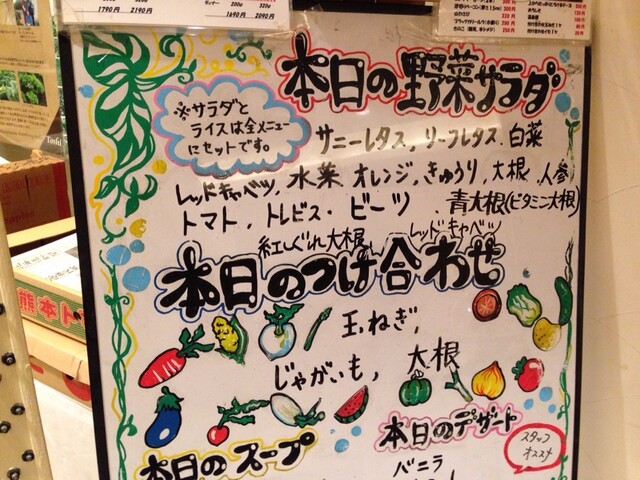 1790円 2190円
ディナー 200g 320g
1690円 2090円
本日の野菜サラダ
※サラダと
ライスは全メニュー
にセットです。
サニーレタス, リーフレタス, 白菜
レッドキャベツ, 水菜 オレンジ, きゅうり, 大根, 人参
トマト, トレビス・ビーツ, 青大根(ビタミン大根)
紅しぐれ大根, レッドキャベツ
本日のつけ合わせ
玉ねぎ,
じゃがいも, 大根
本日のデザート
本日のスープ
スタッフ
オススメ
バニラ
熊本ト